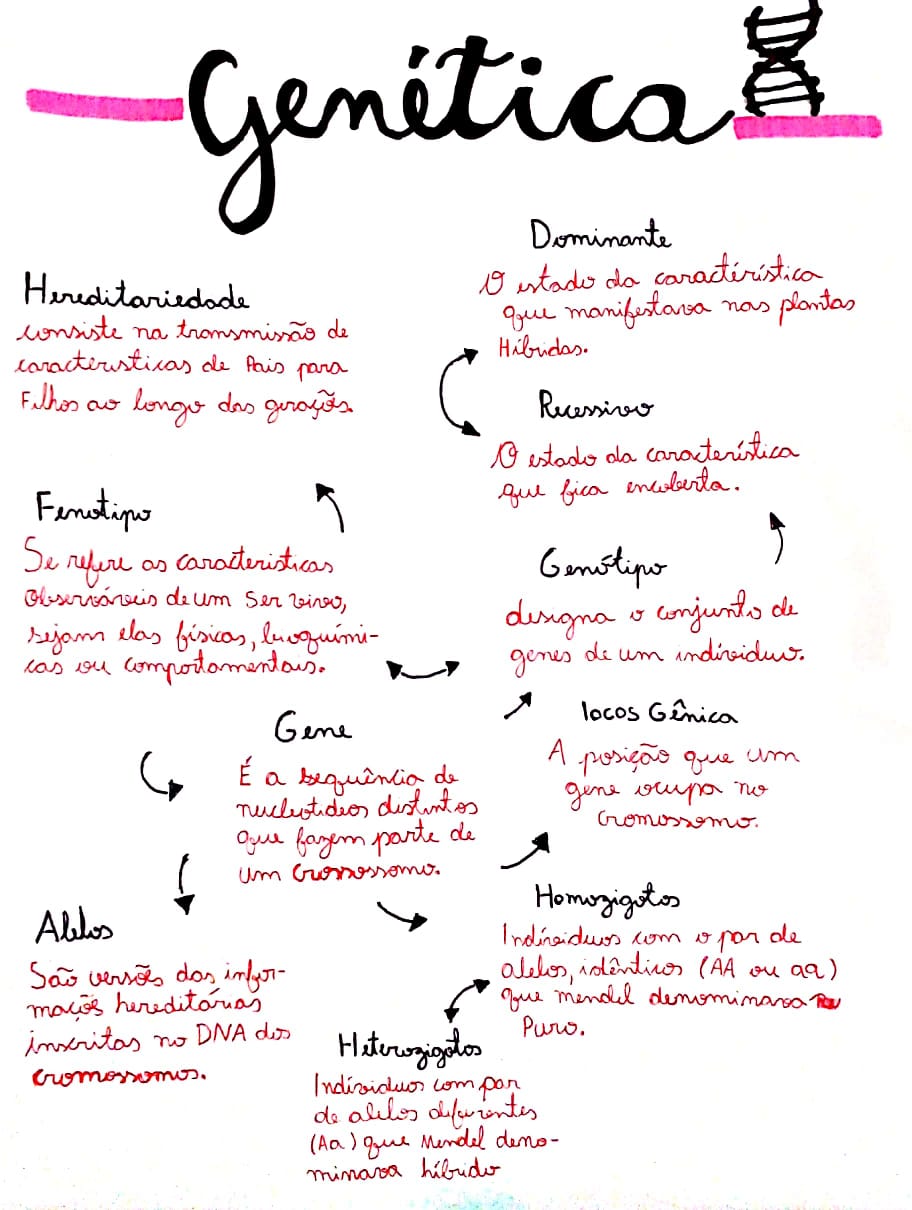 Genética
Hereditariedade
consiste na transmissão de
caracteristicas de Pais para
Filhos ao longo das geraçõs.
Dominante
O estado da caractéristica
que manifestava nas plantas
Híbridas.
Recessivo
O estado da característica
que fica encoberta.
Fenotipo
Se refere as caracteristicas
Observáveis de um Ser vivo,
sejam elas físicas, bioquími-
cas ou comportamentais.
Genótipo
designa o conjunto de
genes de um indíviduo.
Gene
É a sequência de
nucleotideos distintos
que fazem parte de
um Cromossomo.
locos Gênica
A posição que um
gene ocupa no
Cromossomo.
Alelos
São versões das infor-
maçõs hereditárias
inscritas no DNA dos
cromossomos.
Homozigotos
Indíviduos com o par de
alelos, idênticos (AA ou aa)
que mendel denominava
Puro.
Heterozigotos
Indíviduos com par
de alelos diferentes
(Aa) que Mendel deno-
minava híbrido